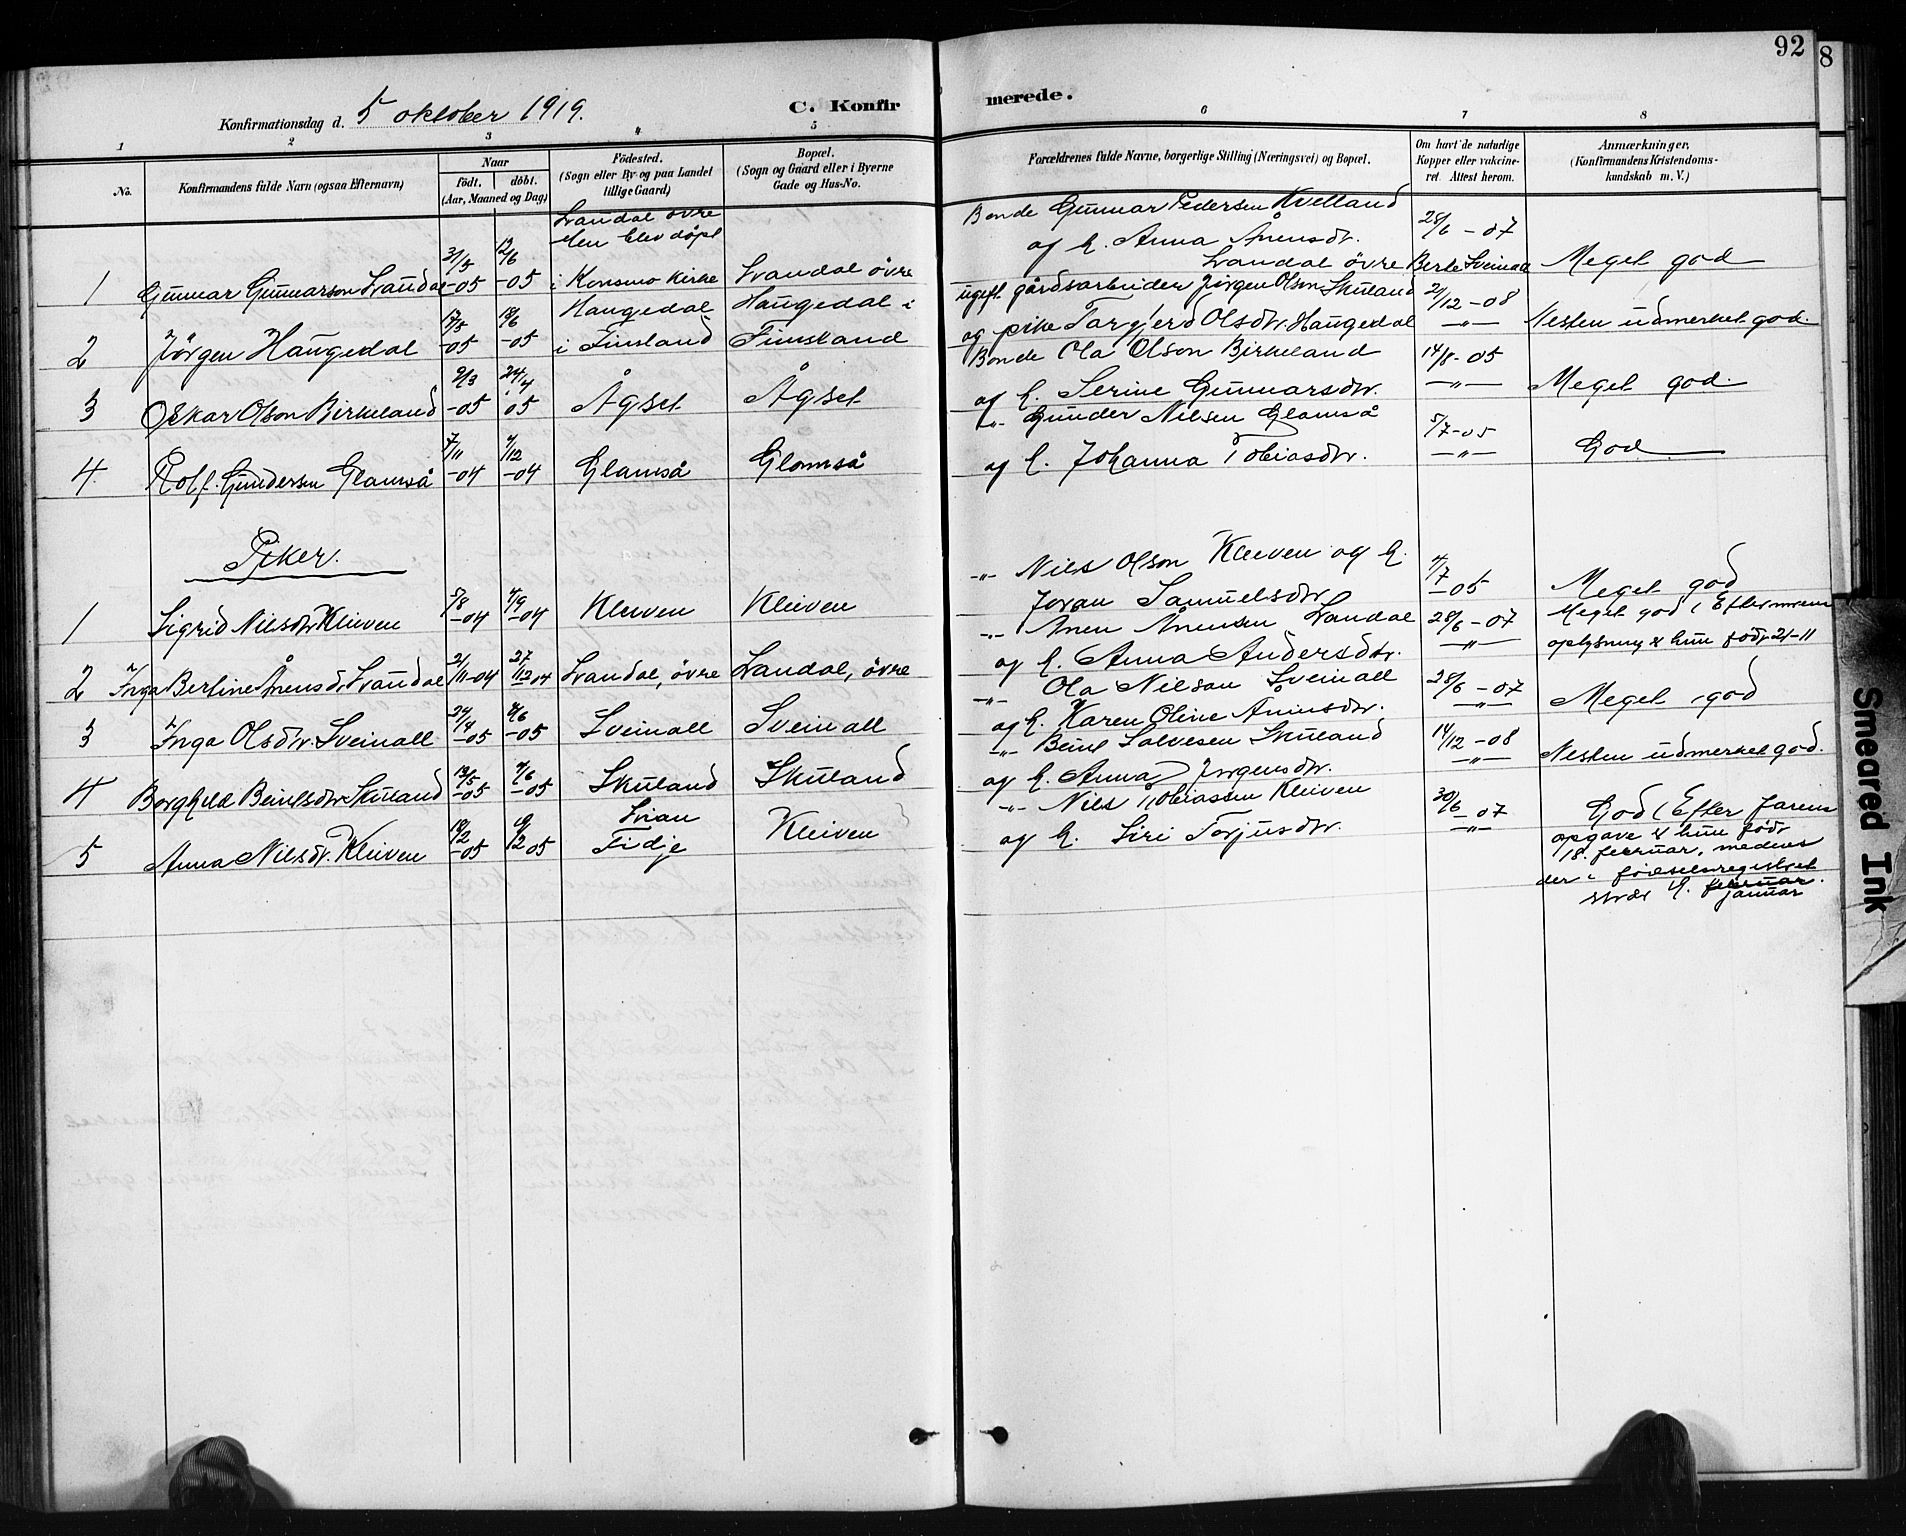 92
8
Konfirmationsdag d. 5 oktober 1919.
C. Konfirmerede.
1 2 3 4 5 6 7 8
No.
Konfirmandens fulde Navn (ogsaa Efternavn)
Naar
födt. döbt.
(Aar, Maaned og Dag)
Födested.
(Sogn eller By og paa Landet
tillige Gaard)
Bopæl.
(Sogn og Gaard eller i Byerne
Gade og Hus-No.
Forældrenes fulde Navne, borgerlige Stilling (Næringsvei) og Bopæl.
Om havt de naturlige
Kopper eller vakcine-
ret. Attest herom.
Anmærkninger,
(Konfirmandens Kristendoms-
kundskab m. V.)
1 Gunnar Gunnarson Svaudal 31/5 -05 12/6 -05
Svandal övre
Men blev döpt
i Konsmo Kirke
Svandal övre
Bonde Gunnar Pedersen Kvelland
og h. Anna Ånensdtr.
Svandal övre
28/6 - 07
Berte Sveinall
Meget god
2 Jørgen Haugedal 17/5 -05 18/6 -05
Haugedal
i Finsland
Haugedal i
Finsland
ugift gårdsarbeider Jörgen Olson Skuland
og pike Targjerd Olsdtr. Haugedal
21/12 - 08
-"-
Nesten udmerket god.
3 Oskar Olson Birkeland 9/3 -05 24/4 05 Ågset Ågset
Bonde Ola Olson Birkeland
og h. Serine Gunnarsdtr.
14/8 - 05
-"-
Meget god.
4. Rolf Gundersen Glamså 7/11 -04 4/12 -04 Glamså Glomså
-"- Gunder Nilsen Glamså
og h. Johanna Tobiasdtr.
5/7 - 05
-"-
God
Piker.
1 Sigrid Nilsdtr Kleiven 5/8 -04 4/9 -04 Kleiven Kleiven
-"- Nils Olson Kleiven og h.
Joran Samuelsdtr
4/7 -05
Meget god
2 Inga Berline Ånensd. Svaudal 21/11 -04 27/12 04 Svandal, övre Svandal, övre
-"- Ånen Ånensen Svandal
og h. Anna Andersdtr.
28/6 - 07
-"-
Meget god (Efter morens
oplysning er hun född 21-11
3 Inga Olsdtr. Sveinall 24/4 -05 4/6 -05 Sveinall Sveinall
-"- Ola Nilsen Sveinall
og h. Karen Oline Åninsdtr.
28/6 - 07
-"-
Meget god
4 Borghild Beintsdtr. Skuland 13/5 -05 4/6 -05 Skuland Skuland
-"- Beint Salvesen Skuland
og h. Anna Jørgensdtr.
14/12 - 08
-"-
Nesten udmerket god.
5 Anna Nilsdr. Kleiven 18/2 -05 19/2 05
Fidje
Kleiven
-"- Nils Tobiassen Kleiven
og h. Siri Torjusdtr.
30/6 - 07
-"-
God (Efter farens
opgave er hun födt
18. februar, medens
der i fødselsregistret
står 4. februar.
januar
Smeared Ink